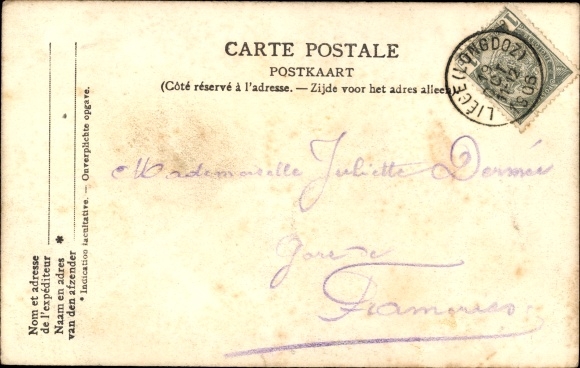 CARTE POSTALE
POSTKAART
(Côté réservé à l'adresse. — Zijde voor het adres alleen)
LIÉGE (LONGDOZ)
1906
Mademoiselle Juliette Dermée
Gare de
Frameries
Nom et adresse
de l'expéditeur
Naam en adres *
van den afzender
* Indication facultative. — Onverplichte opgave.